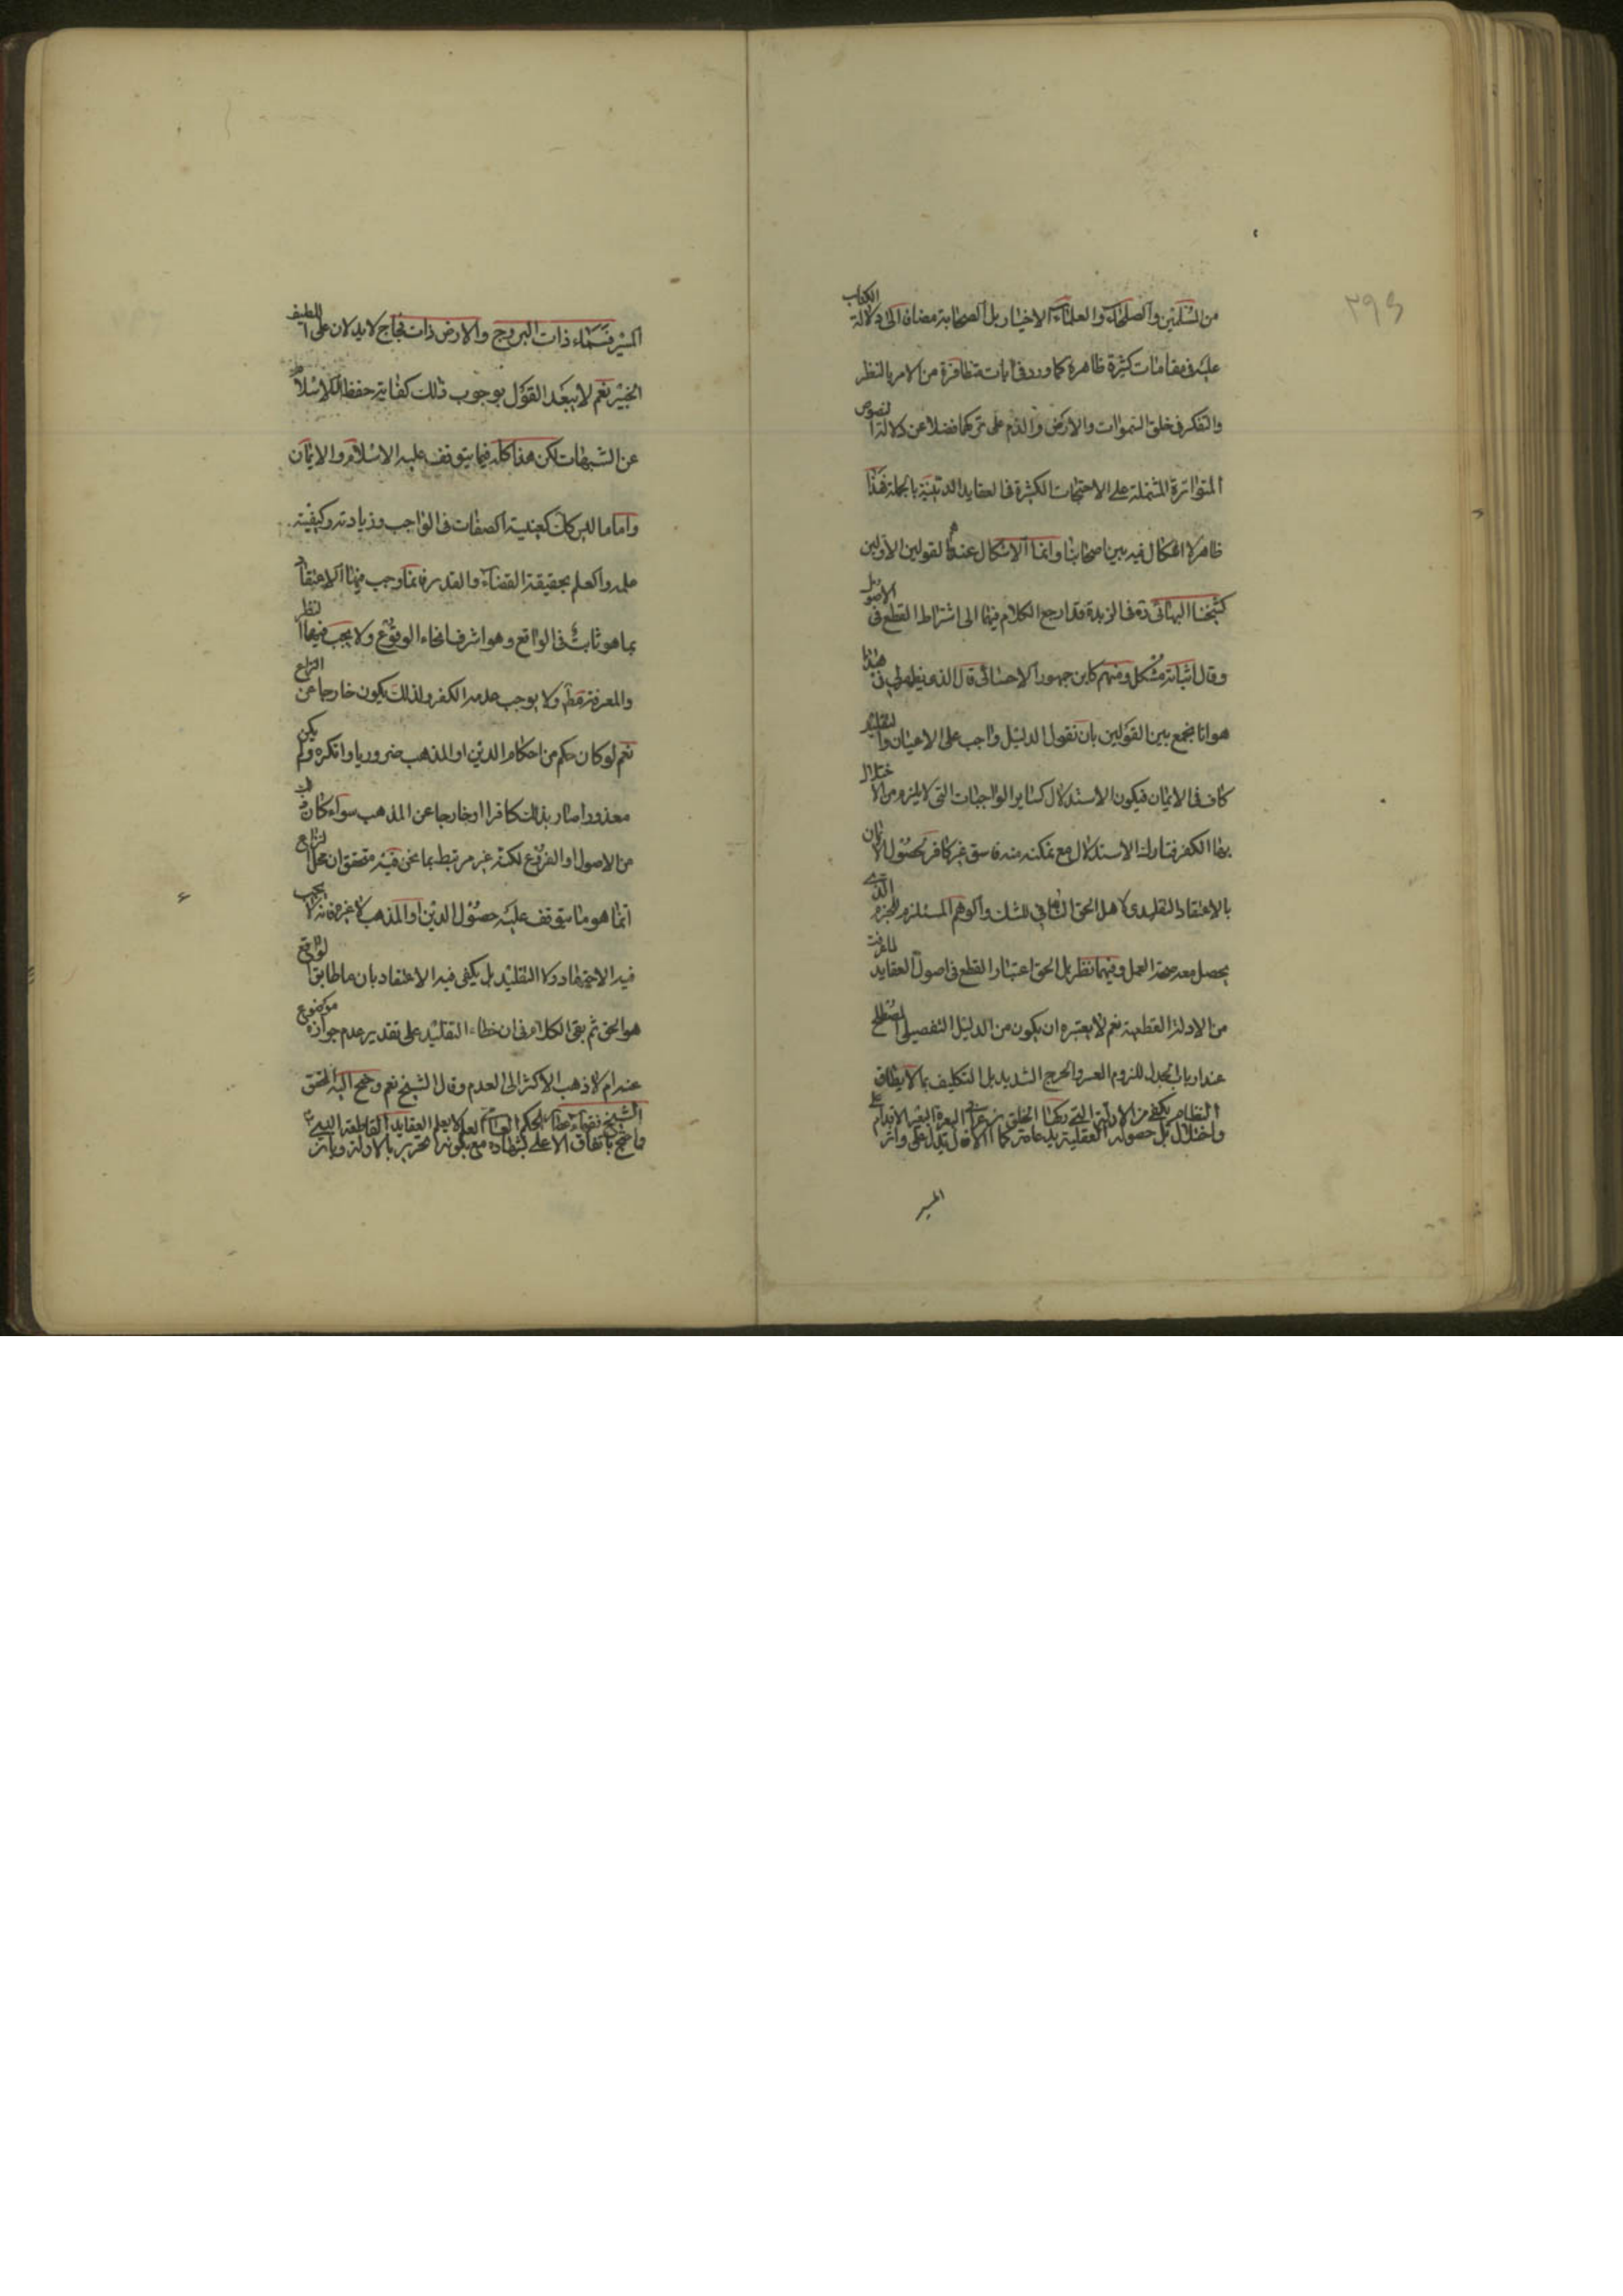 ٢٩٤
من المسلمين والصلحاء والعلماء الاخيار بل الصحابة مضافا الى دلالة الكتاب
عليه في مقامات كثيرة ظاهرة كما ورد في آيات متظافرة من الامر بالنظر
والتفكر في خلق السموات والارض والذم على تركها فضلا عن دلالة النصوص
المتواترة المشتملة على الاحتجاجات الكثيرة في العقايد الدينية بالجملة فهذا
ظاهر لا اشكال فيه بين اصحابنا وانما الاشكال عندهم القولين الاولين
كشيخنا البهائي ره في الزبدة وقد ارجع الكلام فيهما الى اشتراط القطع في الاصول
وقال اثباته مشكل ومنهم كابن جمهور الاحسائي قال الذي يظهر لي في هذا
هو انا نجمع بين القولين بان نقول الدليل واجب على الاعيان والتقليد
كاف في الايمان فيكون الاستدلال كساير الواجبات التي لا يلزم من الاختلال
بها الكفر فتارك الاستدلال مع تمكنه منه فاسق غير كافر لحصول الايمان
بالاعتقاد التقليدي لاهل الحق النافي للشك والوهم المستلزم للجزم الذي
يحصل معه صحة العمل وفيهما نظر بل الحق اعتبار القطع في اصول العقايد لما عرفت
من الادلة القطعية نعم لا يعتبر ان يكون من الدليل التفصيلي المصطلح
عند ارباب الجدل للزوم العسر والحرج الشديد بل التكليف بما لا يطاق
واختلال النظام بل يكفي حصوله من الادلة العقلية التي يدعامة كما الخلق الاقدام يدل على
المسير
المسير فسماء ذات البروج والارض ذات فجاج لا يدلان على اللطيف
الخبير نعم لا يبعد القول بوجوب ذلك كفاية حفظا للاسلام
عن الشبهات لكن هذا كله فيما يتوقف عليه الاسلام والايمان
واما ما ليس كك كعينية الصفات في الواجب وزيادته وكيفية
علمه والعلم بحقيقة القضاء والقدر فانما وجب فيها الاعتقاد
بما هو ثابت في الواقع وهو اشرف انحاء الوقوع ولا يجب فيها النظر
والمعرفة قط ولا يوجب عدمه الكفر ولذلك يكون خارجا عن النزاع
نعم لو كان حكم من احكام الدين او المذهب ضروريا وانكره ولم يكن
معذورا صار بذلك كافرا او خارجا عن المذهب سواء كان
من الاصول او الفروع لكنه غير مرتبط بما نحن فيه فتحقق ان محل النزاع
انما هو ما يتوقف عليه حصول الدين او المذهب لا غير فانه لا يجب
فيه الاجتهاد ولا التقليد بل يكفي فيه الاعتقاد بان ما طابق الواقع
هو الحق ثم بقي الكلام في ان خطاء التقليد على تقدير عدم جوازه موضوع
عنه ام لا ذهب الاكثر الى العدم وقال الشيخ نعم وجنح اليه المحقق